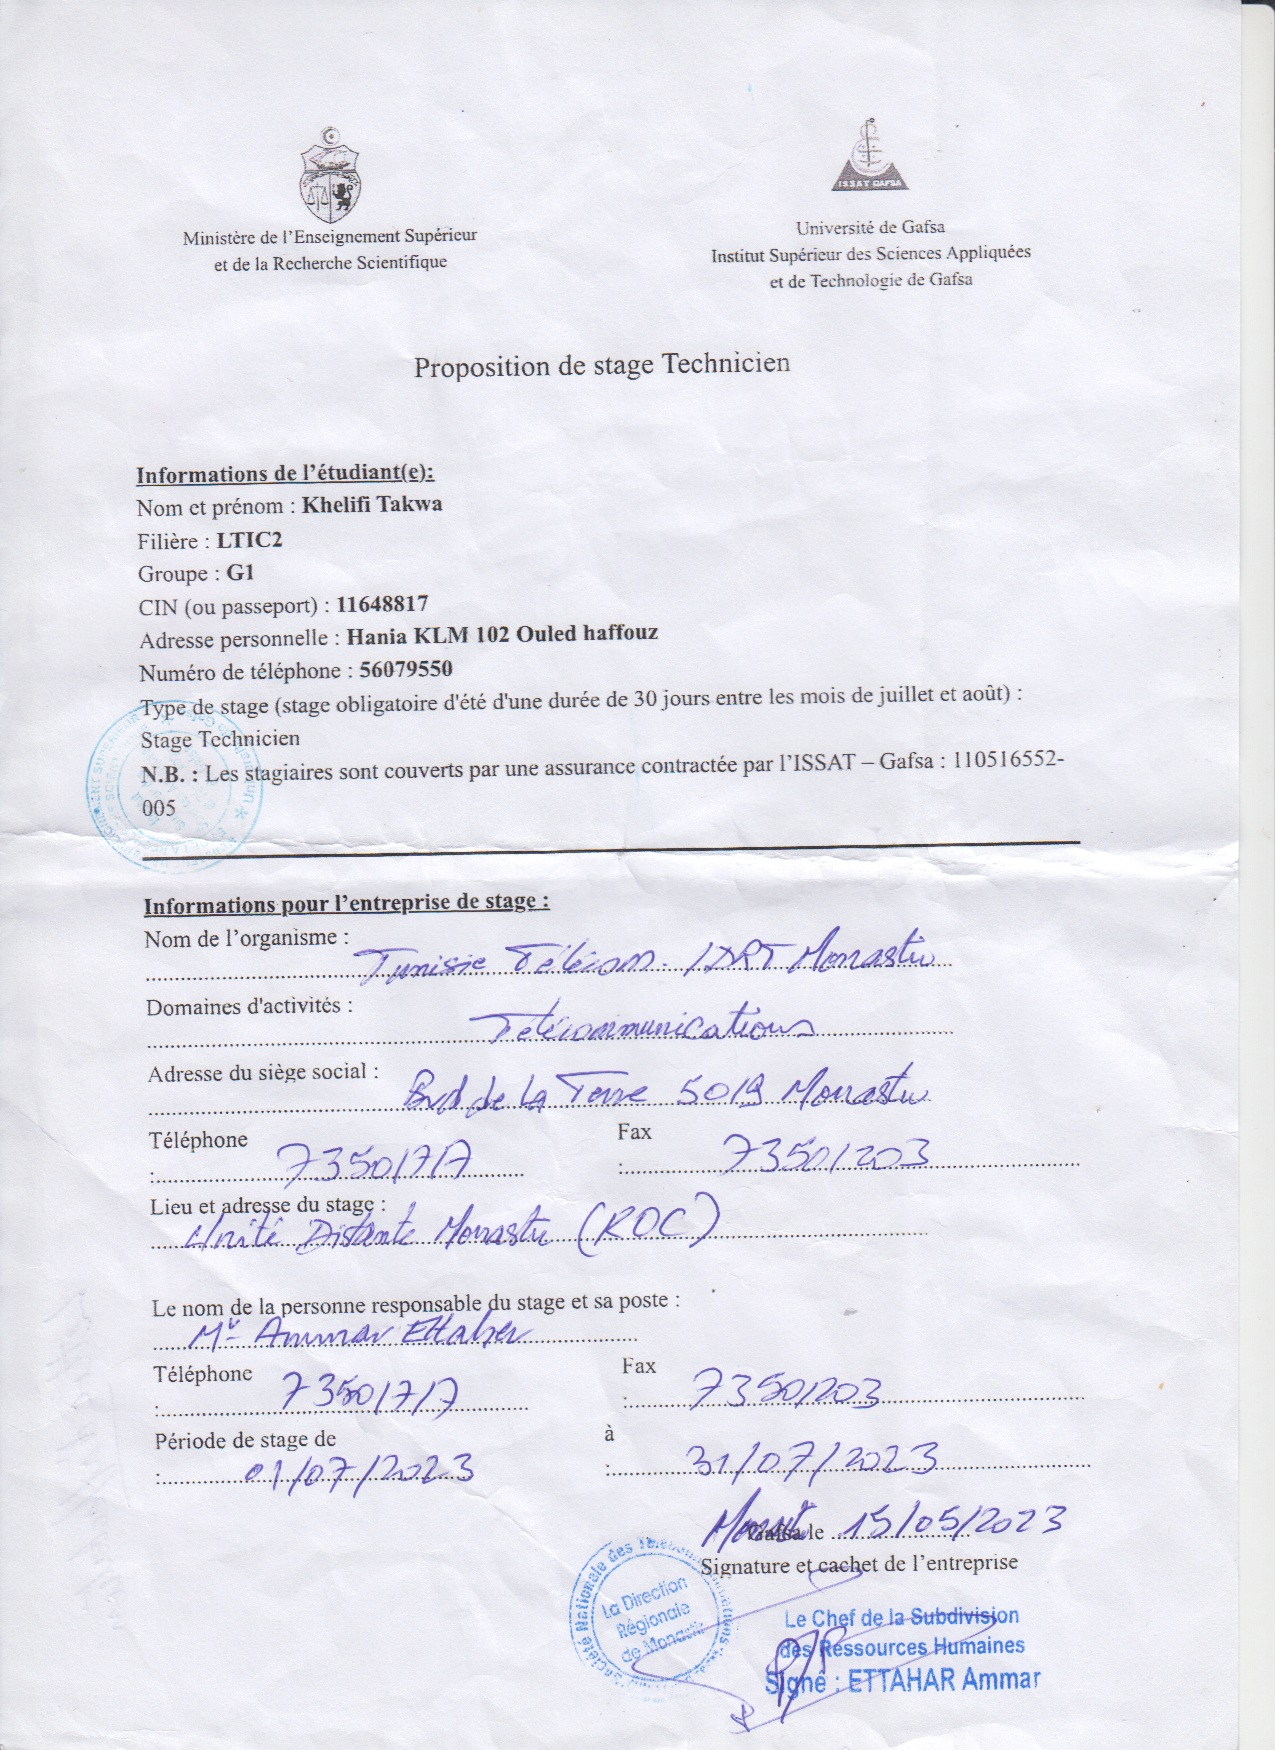 ISSAT GAFSA
Ministère de l'Enseignement Supérieur
et de la Recherche Scientifique
Université de Gafsa
Institut Supérieur des Sciences Appliquées
et de Technologie de Gafsa
Proposition de stage Technicien
Informations de l'étudiant(e):
Nom et prénom : Khelifi Takwa
Filière : LTIC2
Groupe : G1
CIN (ou passeport) : 11648817
Adresse personnelle : Hania KLM 102 Ouled haffouz
Numéro de téléphone : 56079550
Type de stage (stage obligatoire d'été d'une durée de 30 jours entre les mois de juillet et août) :
Stage Technicien
N.B. : Les stagiaires sont couverts par une assurance contractée par l'ISSAT – Gafsa : 110516552-
005
Informations pour l'entreprise de stage :
Nom de l'organisme :
Tunisie Télécom. /DRT Monastir
Domaines d'activités :
Télécommunications
Adresse du siège social :
Bvd de la Terre 5019 Monastir
Téléphone Fax
: 73501717 : 73501203
Lieu et adresse du stage :
Unité Distante Monastir (ROC)
Le nom de la personne responsable du stage et sa poste :
Mr Ammar Ettaher
Téléphone Fax
: 73501717 : 73501203
Période de stage de à
: 01/07/2023 : 31/07/2023
Gafsa le 15/05/2023
Signature et cachet de l'entreprise
Société Nationale des Télécommunications
La Direction
Régionale
de Monastir
Le Chef de la Subdivision
des Ressources Humaines
Signé : ETTAHAR Ammar